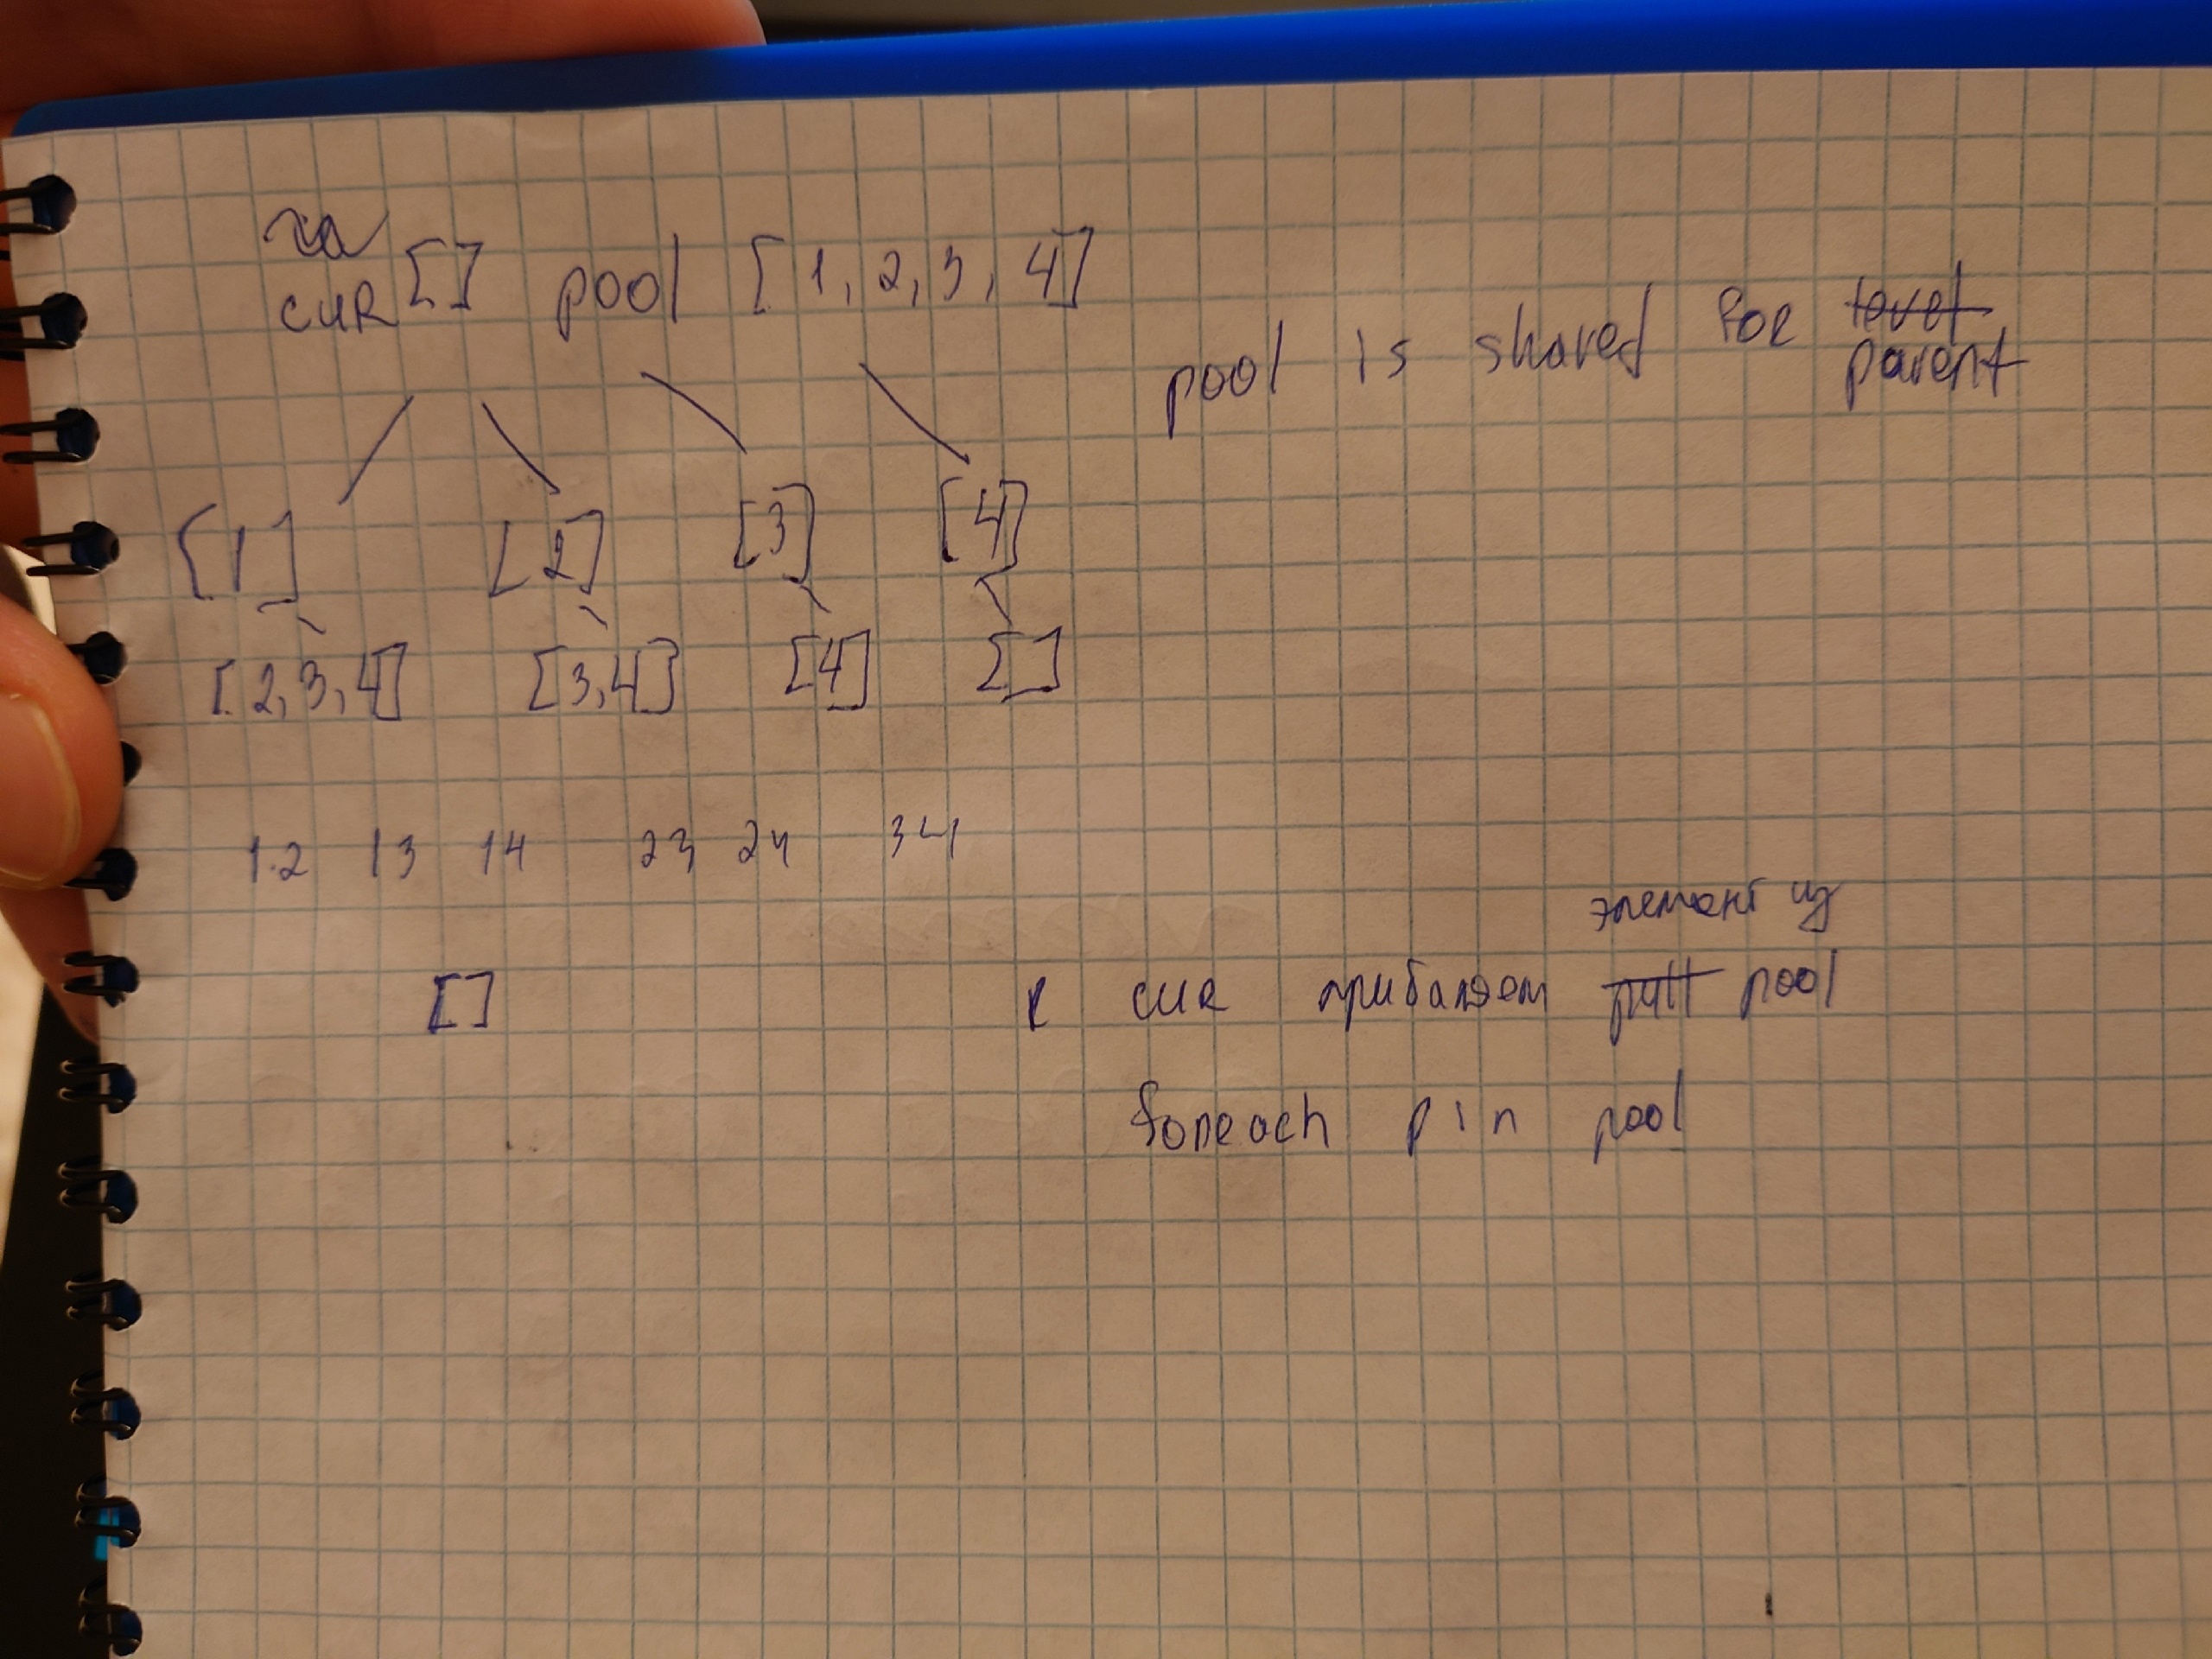 cur [] pool [1, 2, 3, 4]
pool is shared for level
parent
[1] [2] [3] [4]
[2, 3, 4] [3,4] [4] []
1.2 13 14 23 24 34
элемент из
[] к cur прибаляем pull pool
foreach p in pool